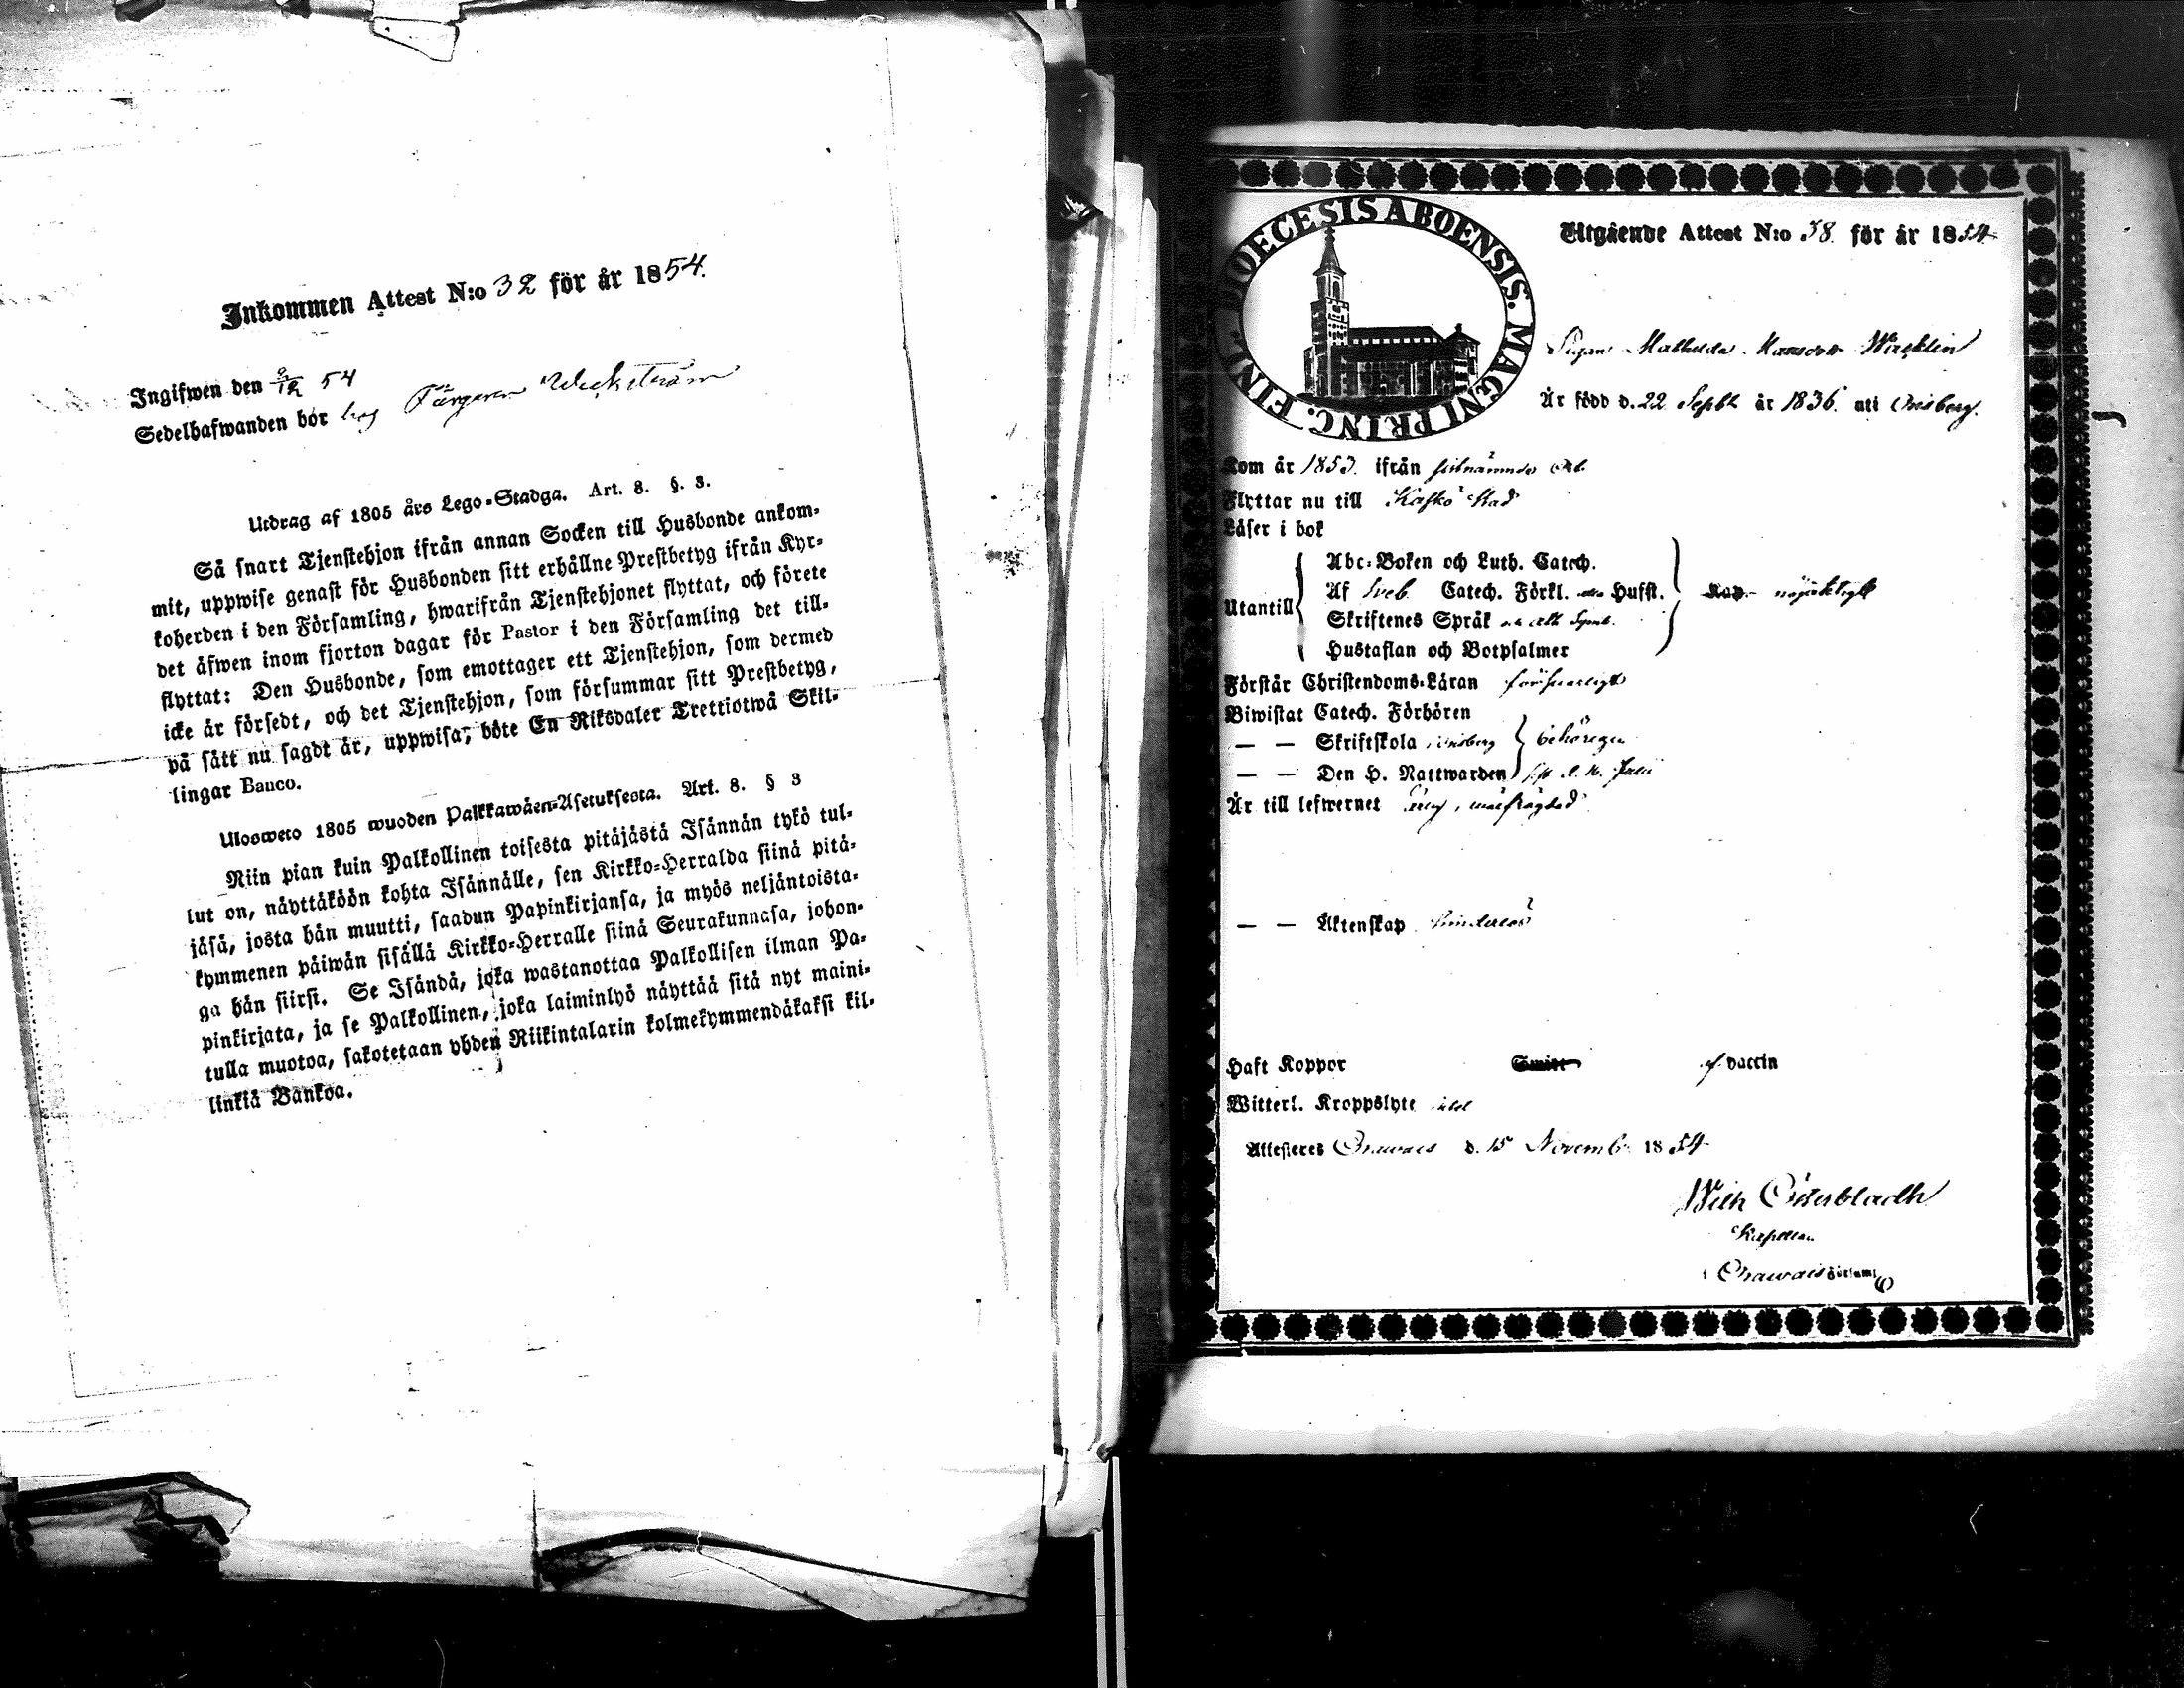 Inkommen Attest N:o 32 för år 1854.
Ingifwen den 9/12 54
Sedelhafwanden bor hos Färgaren Weckström
Utdrag af 1805 års Lego-Stadga. Art. 8. §. 3.
Så snart Tjenstehjon ifrån annan Socken till Husbonde ankom-
mit, uppwise genast för Husbonden sitt erhållne Prestbetyg ifrån Kyr-
koherden i den Församling, hwarifrån Tjenstehjonet flyttat, och förete
det äfwen inom fjorton dagar för Pastor i den Församling det till-
flyttat: Den Husbonde, som emottager ett Tjenstehjon, som dermed
icke är försedt, och det Tjenstehjon, som försummar sitt Prestbetyg,
på sätt nu sagdt är, uppwisa, böte En Riksdaler Trettiotwå Skil-
lingar Banco.
Ulosweto 1805 wuoden Palkkawäen-Asetuksesta. Art. 8. § 3
Niin pian kuin Palkollinen toisesta pitäjästä Isännän tykö tul-
lut on, näyttäköön kohta Isännälle, sen Kirkko-Herralda siinä pitä-
jäsä, josta hän muutti, saadun Papinkirjansa, ja myös neljäntoista-
kymmenen päiwän sisällä Kirkko-Herralle siinä Seurakunnasa, johon-
ga hän siirsi. Se Isändä, joka wastanottaa Palkollisen ilman Pa-
pinkirjata, ja se Palkollinen, joka laiminlyö näyttää sitä nyt maini-
tulla muotoa, sakotetaan yhden Riikintalarin kolmekymmendäkaksi kil-
linkiä Bankoa.
DIOECESIS ABOENSIS. MAGNI PRINC. FINL.
Utgående Attest N:o 38. för år 1854
Pigan Mathilda Mansdotter Wirklin
Är född d. 22 Septbr år 1836. uti
Kom år 1853. ifrån förbenämnde
Flyttar nu till Kaskö Stad
Läser i bok
Utantill
Abc-Boken och Luth. Catech.
Af Sveb. Catech. Förkl. Husst.
Skriftenes Språk Symb.
Hustaflan och Botpsalmer
nöjaktigt
Förstår Christendoms-Läran försvarligt
Biwistat Catech. Förhören
— — Skriftskola
— — Den H. Nattwarden
behörigen
Är till lefwernet ärlig, wälfrägdad
— — Äktenskap hinderlös
Haft Koppor af vaccin
Witterl. Kroppslyte
Attesteres Orawais d. 15 Novemb. 1854
Wilh Österbladh
Kapellan
i Orawais Förs.